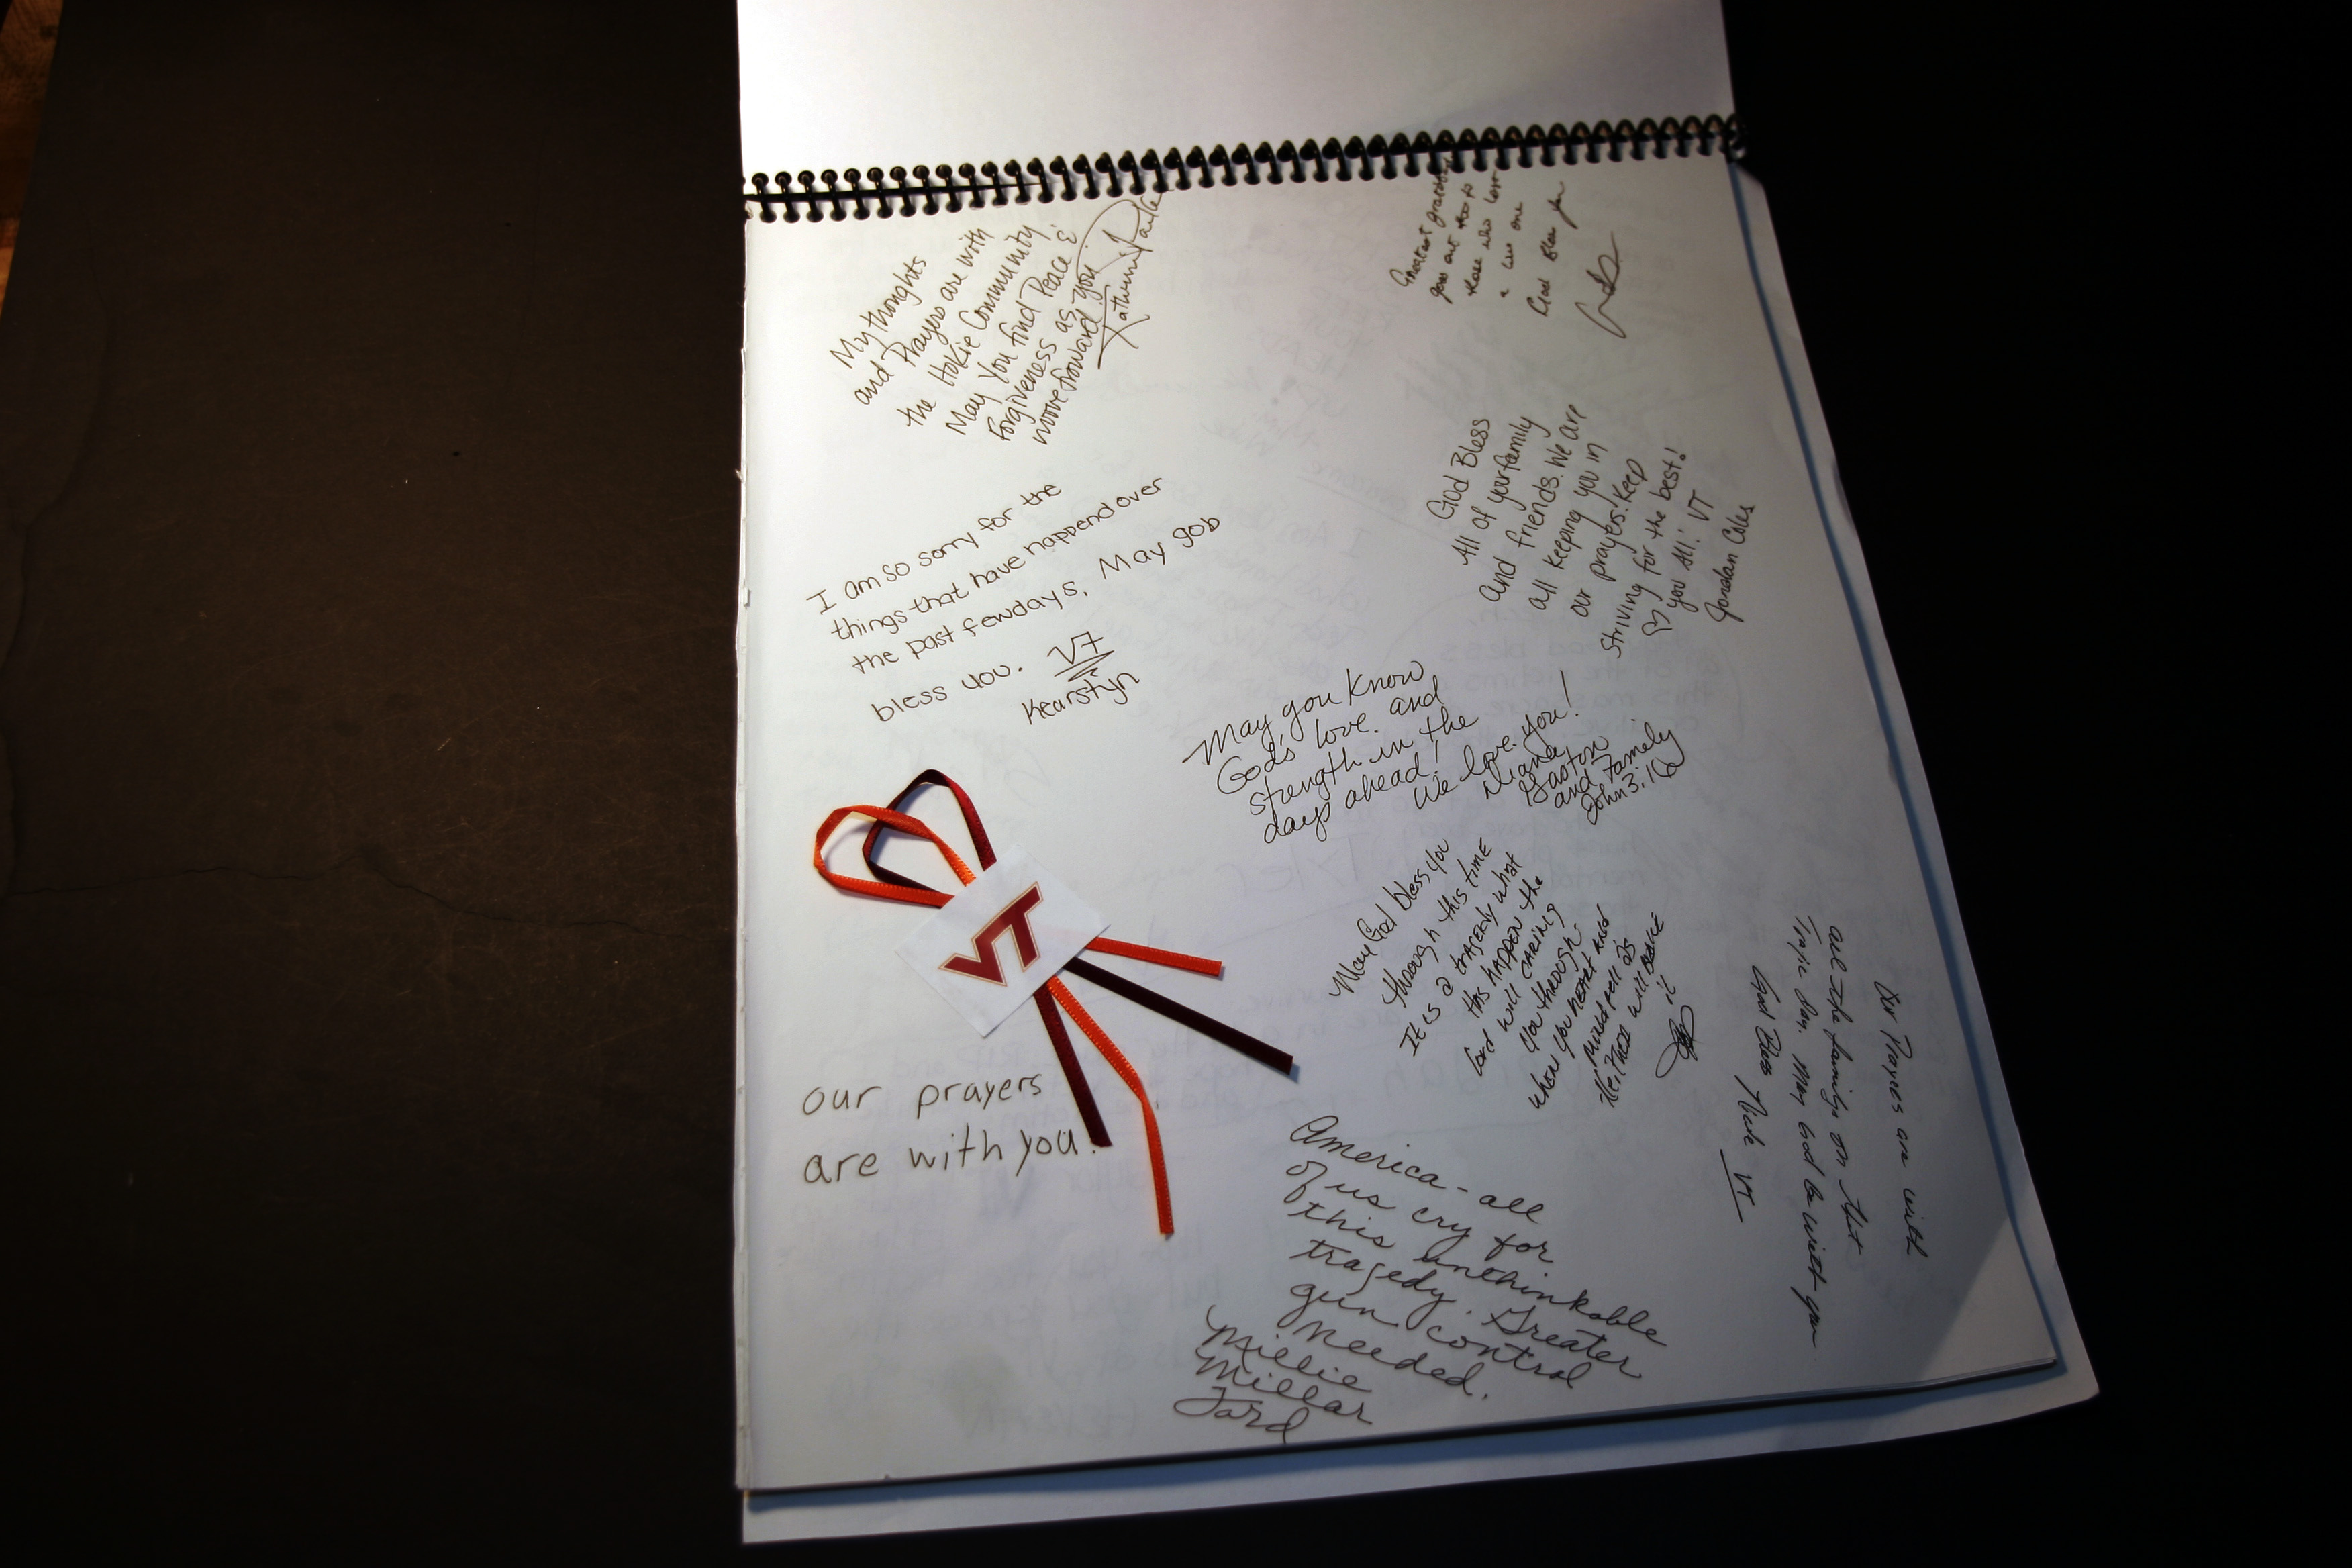 My thoughts
and Prayers are with
the Hokie Community
May you find Peace &
Forgiveness as you
move forward
God Bless you
I am so sorry for the
things that have happend over
the past few days. May GOD
bless you. VT
Kearstyn
God Bless
All of your family
and friends. We are
all keeping you in
our prayers. Keep
striving for the best!
♡ you All! VT
Jordan Coles
May you know
God's love and
strength in the
days ahead!
We love you!
Diana
Gaston
and Family
John 3:16
VT
May God bless you
through this time
It is a tragedy what
this happen the
Lord will caring
you through
when you heart and
mind fell as
neither will
it
our prayers
are with you!
Our Prayers are with
all the familys on that
Tragic Day. May God be with you
God Bless
Nick VT
America - all
of us cry for
this unthinkable
tragedy. Greater
gun control
needed.
Millie
Millar
Ford